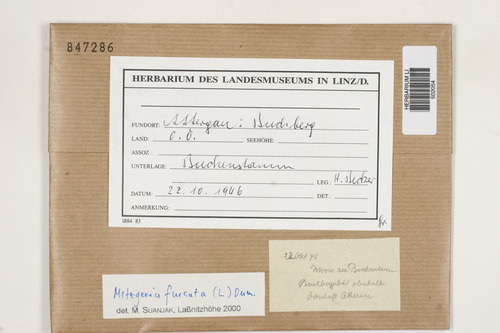 847286
HERBARIUM DES LANDESMUSEUMS IN LINZ/D.
FUNDORT: Attergau: Buchberg
LAND: O.Ö. SEEHÖHE:
ASSOZ.:
UNTERLAGE: Buchenstamm
LEG.: H.
DATUM: 22.10.1946 DET.:
ANMERKUNG:
1884 83
HERBARIUM LI
502054
Metzgeria furcata (L.) Dum.
det. M. SUANJAK, Laßnitzhöhe 2000
22. Okt 46
Moose am Buchenstamm
oberhalb
Attersee